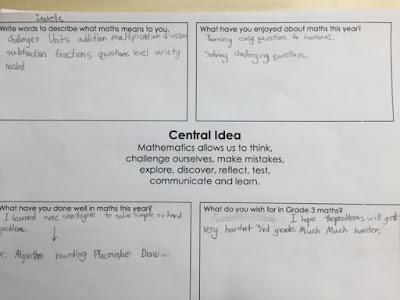 Isabella
Write words to describe what maths means to you.
challenges Units addition multiplication division
subtraction fractions questions level variety
needed
What have you enjoyed about maths this year?
Turning easy questions to harder ones.
Solving challenging questions.
Central Idea
Mathematics allows us to think,
challenge ourselves, make mistakes,
explore, discover, reflect, test,
communicate and learn.
What have you done well in maths this year?
I learned more strategies to solve simple or hard
problems.
Algorithm rounting Placevalue Draw...
What do you wish for in Grade 3 maths?
I hope the problems will get
very harder 3rd grade. Much Much harder.